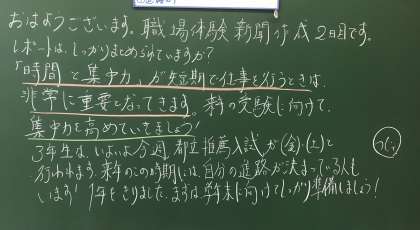 おはようございます。職場体験新聞作成2日目です。
レポートは、しっかりまとめられていますか?
「時間」と集中力」が短期で仕事を行うときは、
非常に重要となってきます。来年の受験に向けて、
集中力を高めていきましょう!
3年生はいよいよ今週都立推薦入試が(金)・(土)と
行われます。来年のこの時期には、自分の進路が決まっている人も
います!1年をきりました。まずは学年末に向けてしっかり準備しましょう!